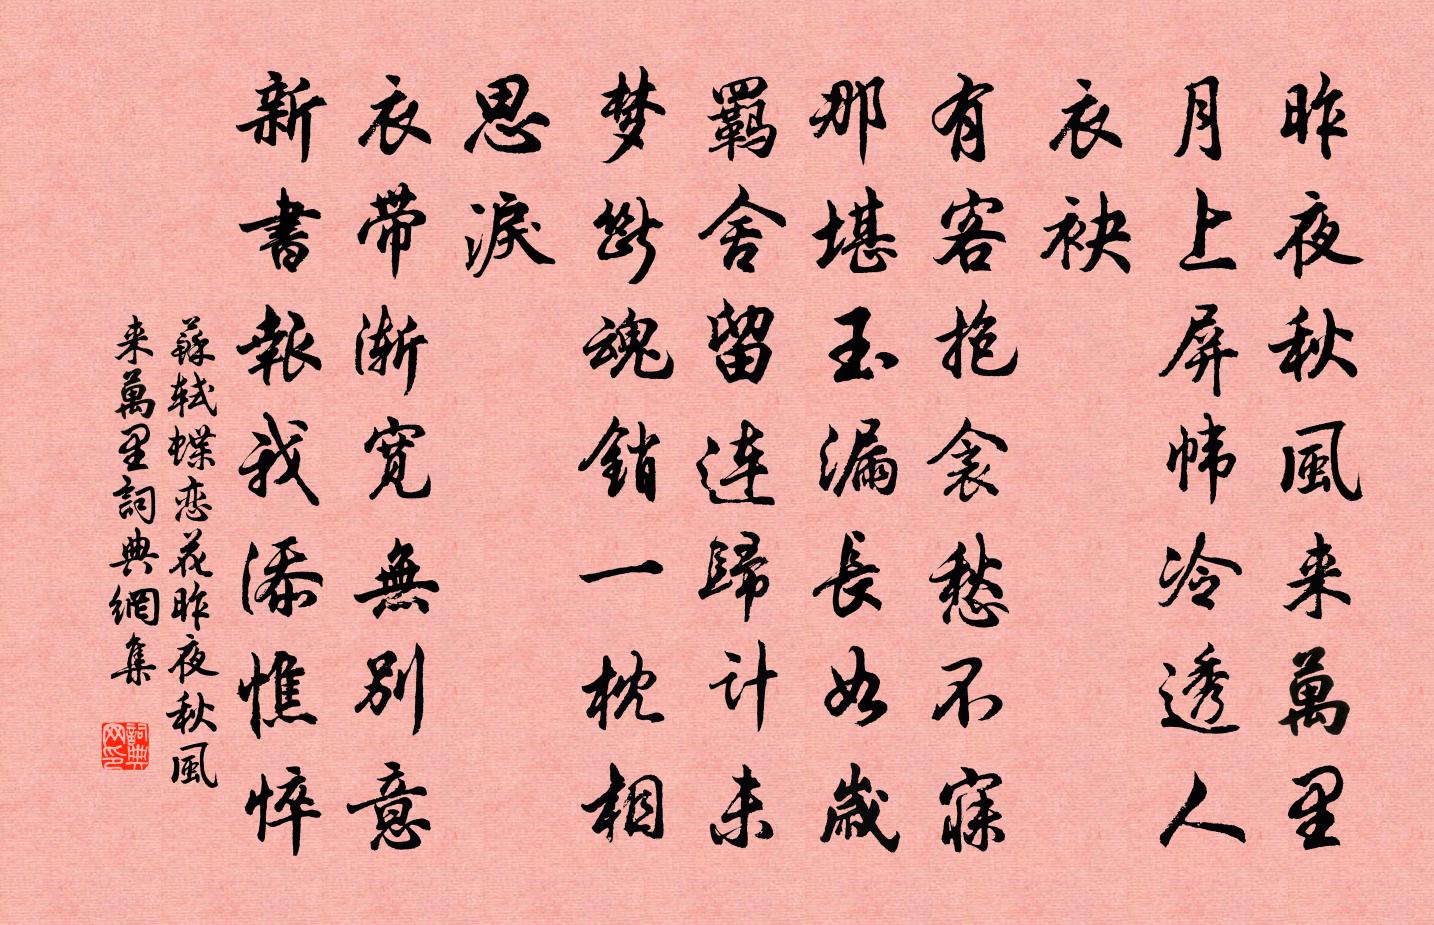 昨夜秋風来萬里
月上屏幃冷透人
衣袂
有客抱衾愁不寐
那堪玉漏長如歲
羈舍留連歸計未
梦斷魂銷一枕相
思淚
衣帶漸寬無別意
新書報我添憔悴
蘇軾蝶恋花昨夜秋風
来萬里詞典網集
詞典
网印